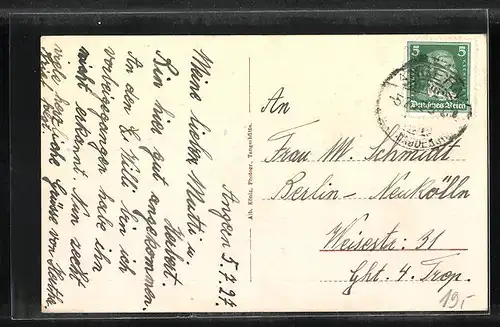 Angern 5.7.27.
Meine lieben Mutti u.
Herbert.
Bin hier gut angekommen.
An den Willi bin ich
vorbeigegangen habe ihn
nicht erkannt. Nun seid
viele herzliche Grüsse von Martha
Alb. König, Photogr., Tangerhütte.
5 5
Deutsches Reich
An
Frau M. Schmidt
Berlin-Neukölln
Weisestr. 31
Ght. 4. Trop.
19,-